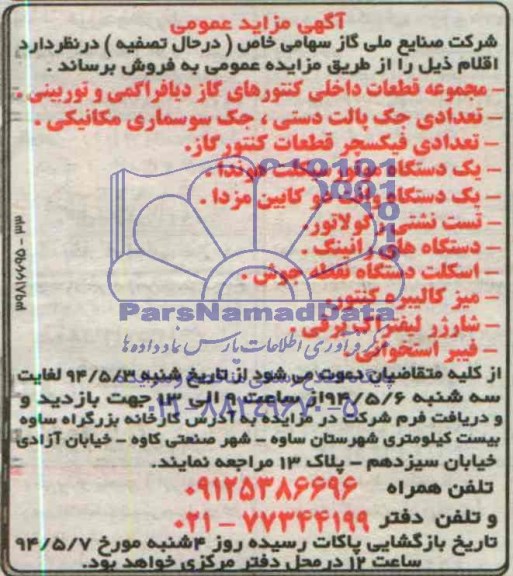 آگهی مزاید عمومی
شرکت صنایع ملی گاز سهامی خاص ( درحال تصفیه ) درنظردارد
اقلام ذیل را از طریق مزایده عمومی به فروش برساند .
- مجموعه قطعات داخلی کنتورهای گاز دیافراگمی و توربینی .
- تعدادی جک پالت دستی ، جک سوسماری مکانیکی .
- تعدادی فیکسچر قطعات کنتور گاز .
- یک دستگاه موتور سیکلت هوندا .
- یک دستگاه وانت دو کابین مزدا .
تست نشتی رگولاتور .
- دستگاه های رانینگ .
- اسکلت دستگاه نقطه جوش .
- میز کالیبره کنتور .
ParsNamadData
- شارژر لیفتراک برقی .
مرکز فرآوری اطلاعات پارس نماد داده ها
- فیبر استخوانی .
از کلیه متقاضیان دعوت می شود از تاریخ شنبه ۹۴/۵/۳ لغایت
سه شنبه ۹۴/۵/۶ از ساعت ۹ الی ۱۳ جهت بازدید و
۰۲۱-۸۸۳۴۹۶۷۰-۵
و دریافت فرم شرکت در مزایده به آدرس کارخانه بزرگراه ساوه
بیست کیلومتری شهرستان ساوه - شهر صنعتی کاوه - خیابان آزادی
خیابان سیزدهم - پلاک ۱۳ مراجعه نمایند.
تلفن همراه ۰۹۱۲۵۳۸۶۶۹۶
و تلفن دفتر ۷۷۳۴۴۱۹۹ - ۰۲۱
تاریخ بازگشایی پاکات رسیده روز ۴شنبه مورخ ۹۴/۵/۷
ساعت ۱۲ در محل دفتر مرکزی خواهد بود.